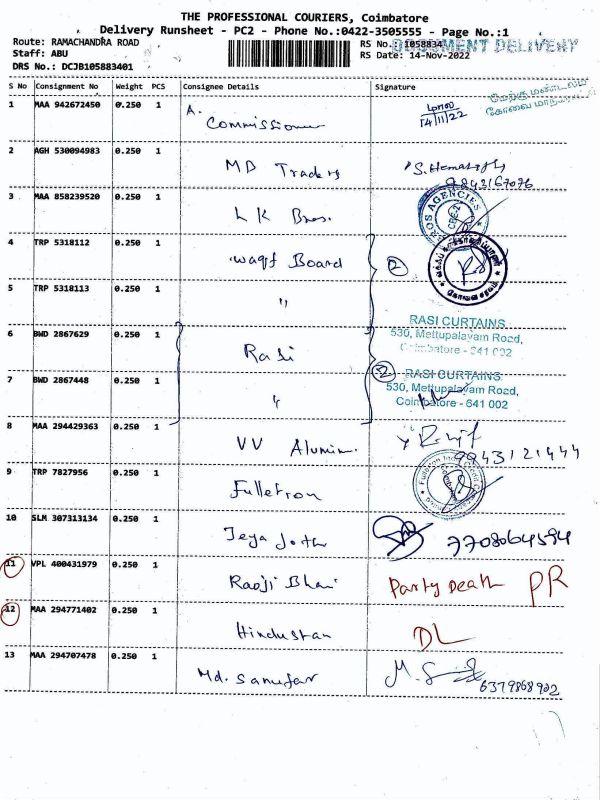 THE PROFESSIONAL COURIERS, Coimbatore
Delivery Runsheet - PC2 - Phone No.:0422-3505555 - Page No.:1
Route: RAMACHANDRA ROAD
Staff: ABU
DRS No.: DCJB105883401
RS No.: 1058834
DOCUMENT DELIVERY
RS Date: 14-Nov-2022
S No Consignment No Weight PCS Consignee Details Signature
1 MAA 942672450 0.250 1 A. Commissioner 14/11/22
மேற்கு மண்டலம்
2 AGH 530094983 0.250 1 MD Traders 9843167076
3 MAA 858239520 0.250 1 L K Bros.
ROS AGENCIES
CBE-2
4 TRP 5318112 0.250 1 Waqf Board 2
5 TRP 5318113 0.250 1 "
6 BWD 2867629 0.250 1 Rasi
RASI CURTAINS
530, Mettupalayam Road,
Coimbatore - 641 002
7 BWD 2867448 0.250 1 " 2
RASI CURTAINS
530, Mettupalayam Road,
Coimbatore - 641 002
8 MAA 294429363 0.250 1 VV Alumin. 9943121444
9 TRP 7827956 0.250 1 Fulletron
10 SLM 307313134 0.250 1 Jeya Jothi 7708064594
11 VPL 400431979 0.250 1 Raoji Bhai Party Death PR
12 MAA 294771402 0.250 1 Hindustan DL
13 MAA 294707478 0.250 1 Md. Sanufar 6379868902